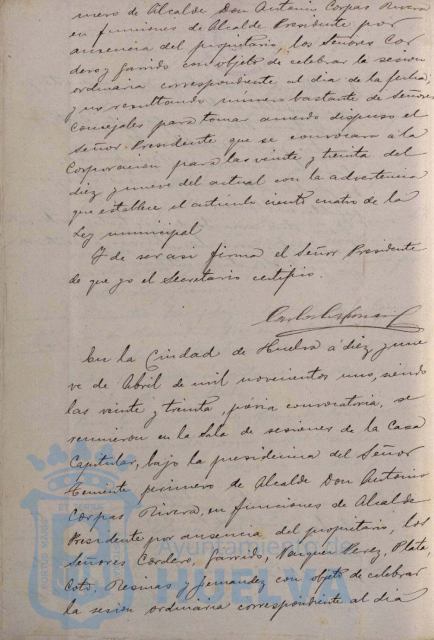 mero de Alcalde Don Antonio Corpas Rivera
en funciones de Alcalde Presidente por
ausencia del propietario, los Señores Cor
dero y Garrido con objeto de celebrar la sesion
ordinaria correspondiente al dia de la fecha;
y no resultando número bastante de Señores
Concejales para tomar acuerdo dispuso el
Señor Presidente que se convocara a la
Corporacion para las veinte y treinta del
diez y nueve del actual con la advertencia
que establece el artículo ciento cuatro de la
Ley municipal
Y de ser asi firma el Señor Presidente
de que yo el Secretario certifico.
En la Ciudad de Huelva a diez y nue
ve de Abril de mil novecientos uno, siendo
las veinte y treinta, previa convocatoria, se
reunieron en la Sala de sesiones de la Casa
Capitular, bajo la presidencia del Señor
Teniente primero de Alcalde Don Antonio
Corpas Rivera, en funciones de Alcalde
Presidente por ausencia del propietario, los
señores Cordero, Garrido, Vazquez Perez, Plata,
Coto, Resinas y Fernandez con objeto de celebrar
la sesion ordinaria correspondiente al dia
Ayuntamiento de
HUELVA